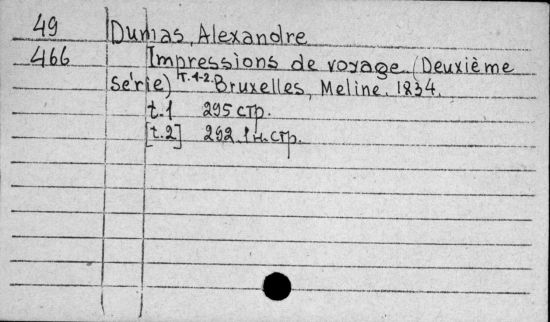 49 Dumas, Alexandre
466 Impressions de voyage. (Deuxième
série) т.1-2. Bruxelles, Meline. 1834.
t.1 295 стр.
[t.2] 292.1н.стр.